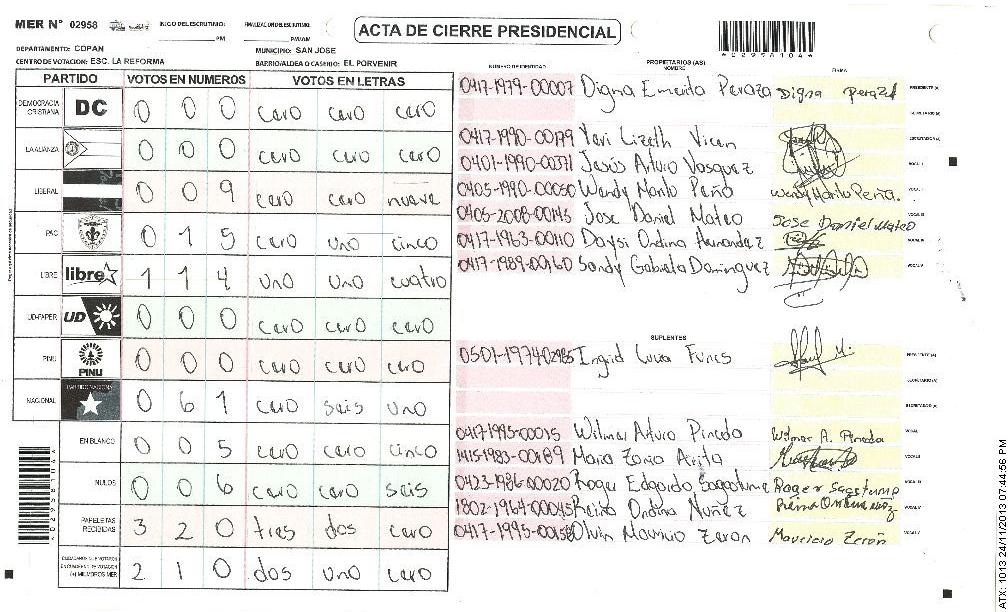 MER N° 02958 INICIO DEL ESCRUTINIO: PM FINALIZACION DEL ESCRUTINIO: PM/AM
ACTA DE CIERRE PRESIDENCIAL
DEPARTAMENTO: COPAN MUNICIPIO: SAN JOSE
CENTRO DE VOTACION: ESC. LA REFORMA BARRIO/ALDEA O CASERIO: EL PORVENIR
PARTIDO VOTOS EN NUMEROS VOTOS EN LETRAS
DEMOCRACIA CRISTIANA DC 0 0 0 cero cero cero
LA ALIANZA 0 0 0 cero cero cero
LIBERAL 0 0 9 cero cero nueve
PAC 0 1 5 cero uno cinco
LIBRE libre 1 1 4 uno uno cuatro
UD-FAPER UD 0 0 0 cero cero cero
PINU PINU 0 0 0 cero cero cero
NACIONAL PARTIDO NACIONAL 0 6 1 cero seis uno
EN BLANCO 0 0 5 cero cero cinco
NULOS 0 0 6 cero cero seis
PAPELETAS RECIBIDAS 3 2 0 tres dos cero
2 1 0 dos uno cero
*02958104*
NUMERO DE IDENTIDAD PROPIETARIOS (AS) NOMBRE FIRMA
0417-1979-00007 Digna Emerita Peraza Digna Peraza PRESIDENTE (A)
SECRETARIO (A)
0417-1990-00179 Yeri Lizeth Vicen ESCRUTADOR (A)
0401-1990-00371 Jesús Arturo Vasquez VOCAL I
0405-1990-00050 Wendy Manlo Peña Wendy Manlo Peña. VOCAL II
0405-2008-00145 Jose Daniel Mateo Jose Daniel Mateo VOCAL III
0417-1963-00110 Daysi Ondina Hernandez VOCAL IV
0417-1989-00160 Sandy Gabriela Dominguez VOCAL V
SUPLENTES
0501-1974-02985 Ingrid Lucia Funes PRESIDENTE (A)
SECRETARIO (A)
ESCRUTADOR (A)
0417-1995-00015 Wilmer Arturo Pineda Wilmer A. Pineda VOCAL I
1415-1983-00189 Maria Zonia Arita VOCAL II
0423-1986-00020 Roger Edgardo Sagastume Roger Sagastume VOCAL III
1802-1964-00045 Reina Ondina Nuñez Reina Ondina Nuñez VOCAL IV
0417-1995-00158 Olvin Mauricio Zeron Mauricio Zerón VOCAL V
*02958104*
ATX: 1013 24/11/2013 07:44:56 PM